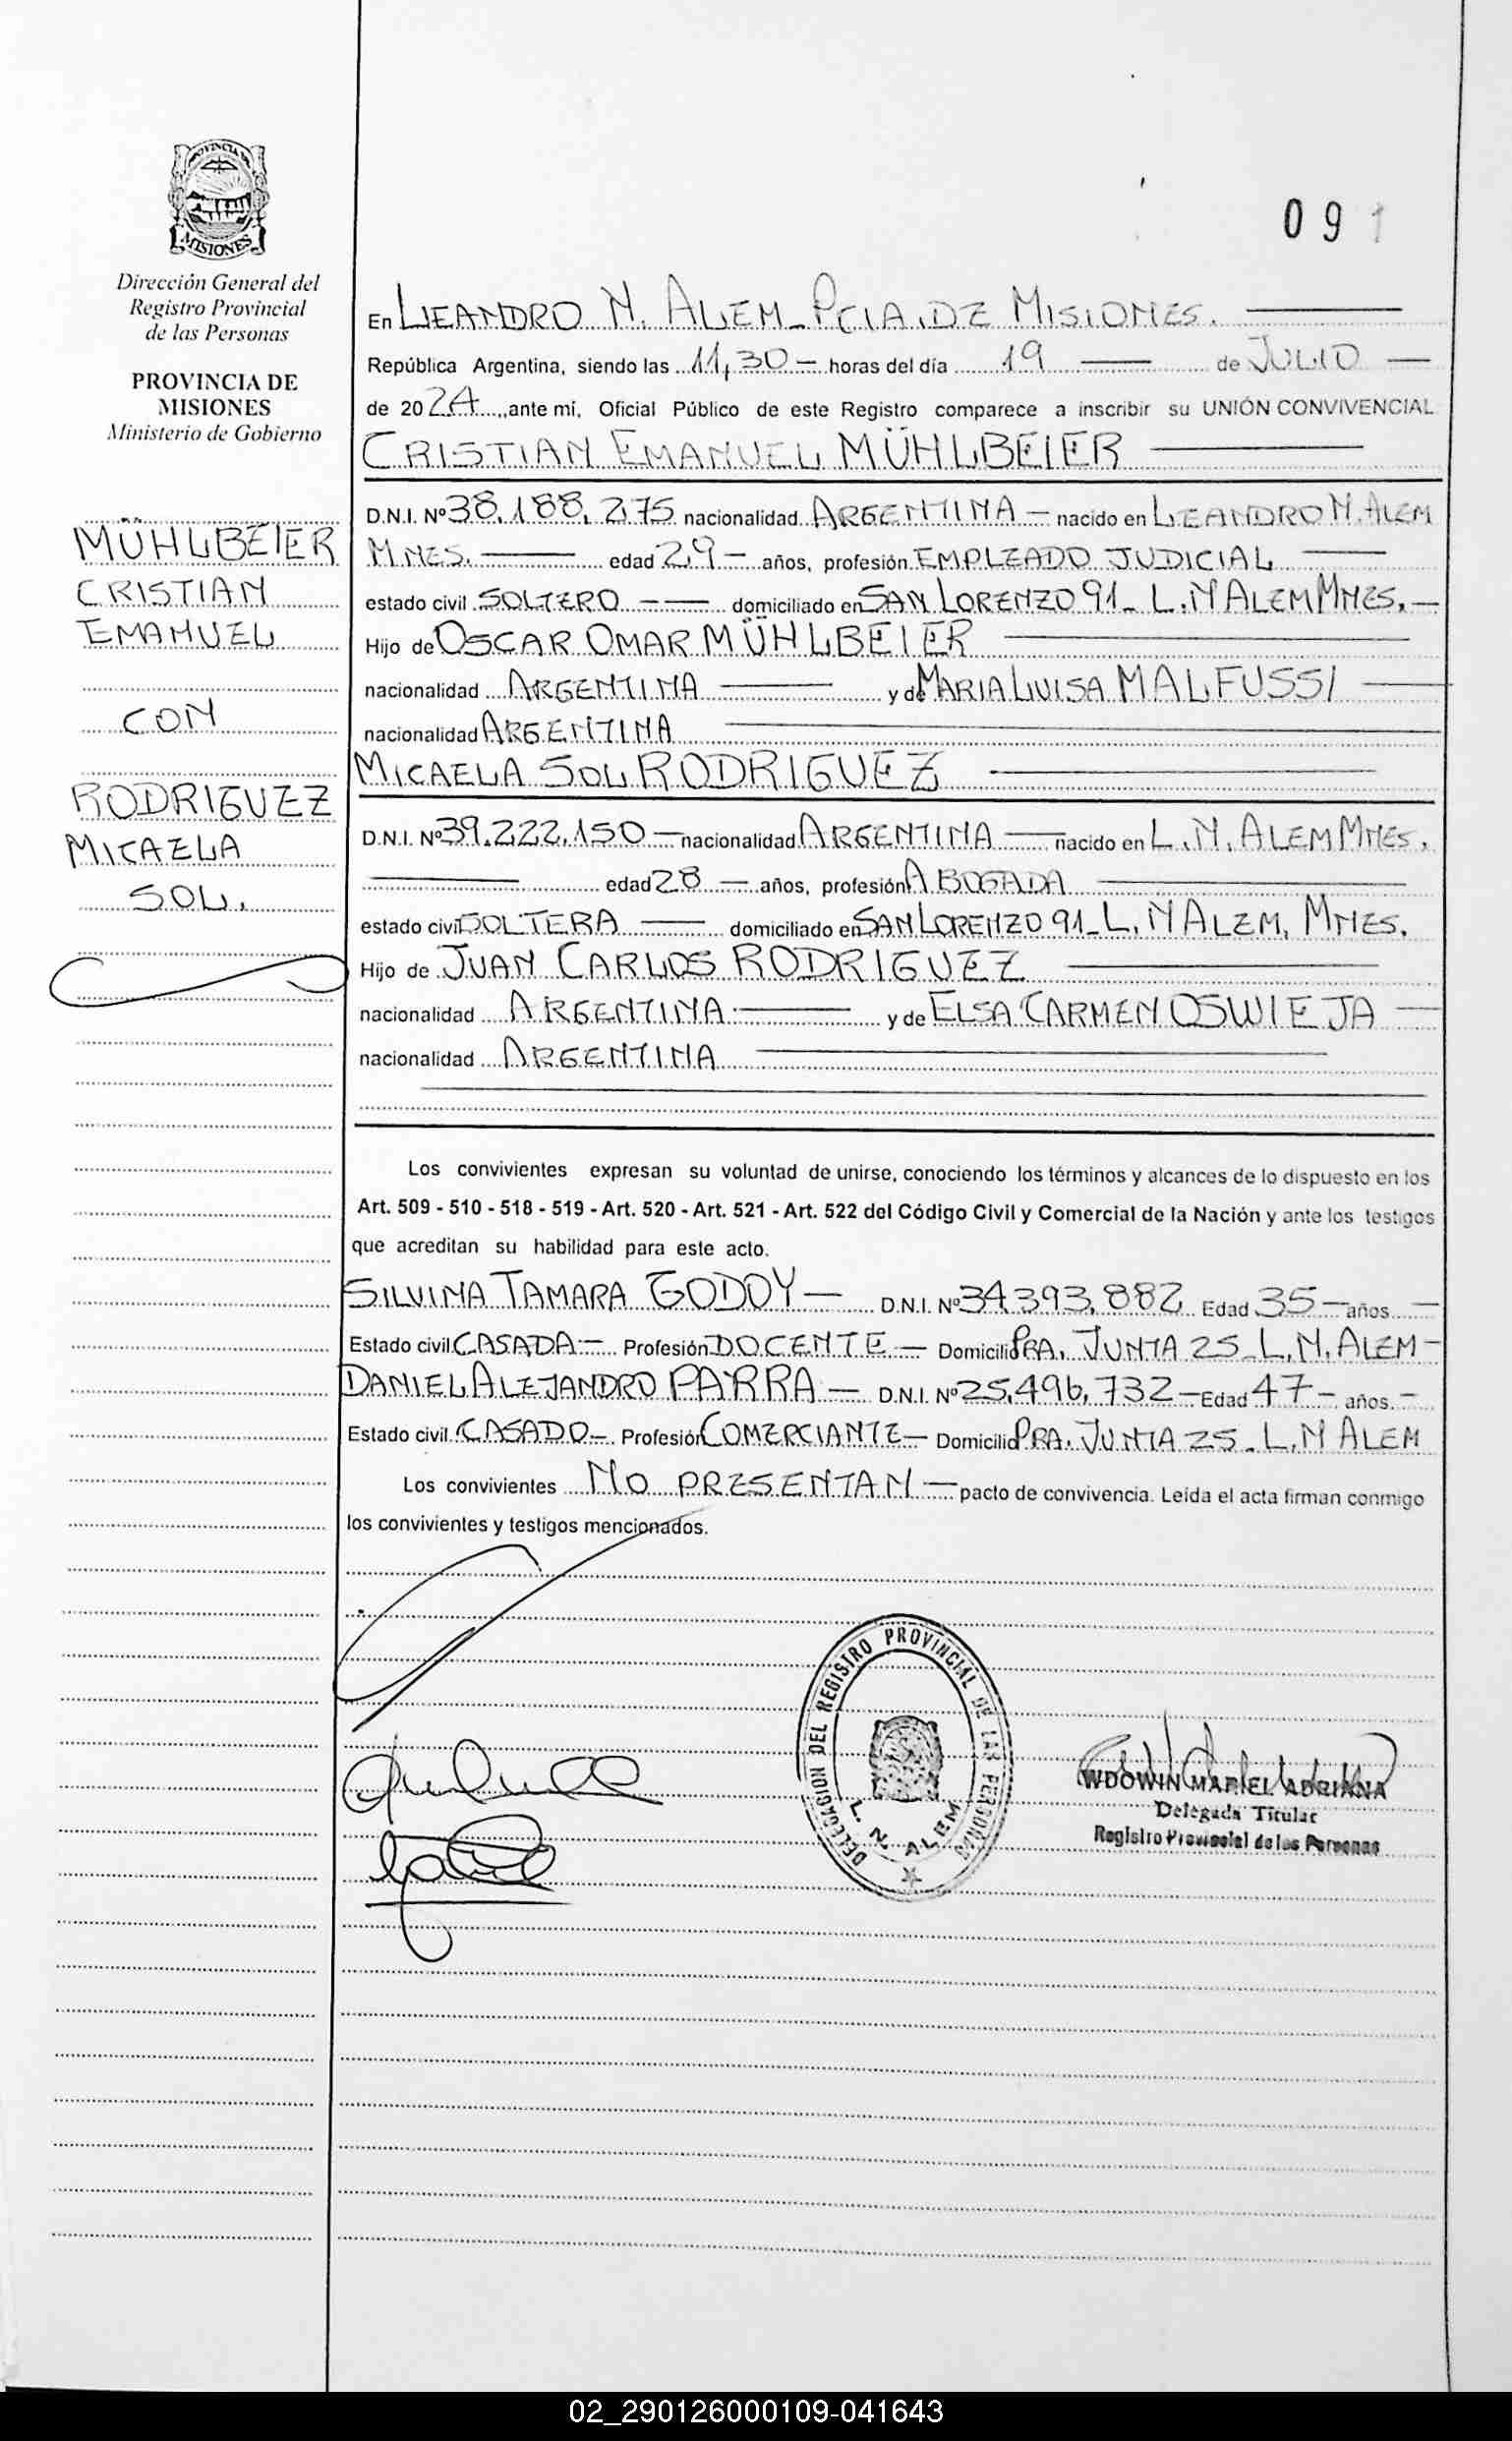 PROVINCIA DE
MISIONES
Dirección General del
Registro Provincial
de las Personas
PROVINCIA DE
MISIONES
Ministerio de Gobierno
MÜHLBEIER
CRISTIAN
EMANUEL
CON
RODRIGUEZ
MICAELA
SOL.
091
En LEANDRO N. ALEM - PCIA. DE MISIONES.
República Argentina, siendo las 11,30 — horas del día 19 — de JULIO —
de 2024, ante mí, Oficial Público de este Registro comparece a inscribir su UNIÓN CONVIVENCIAL
CRISTIAN EMANUEL MÜHLBEIER
D.N.I. Nº 38.188.275 nacionalidad ARGENTINA — nacido en LEANDRO N. ALEM
MNES. — edad 29 — años, profesión EMPLEADO JUDICIAL —
estado civil SOLTERO — domiciliado en SAN LORENZO 91 - L.N ALEM MNES. —
Hijo de OSCAR OMAR MÜHLBEIER
nacionalidad ARGENTINA — y de MARIA LUISA MALFUSSI —
nacionalidad ARGENTINA
MICAELA SOL RODRIGUEZ
D.N.I. Nº 39.222.150 — nacionalidad ARGENTINA — nacido en L.N. ALEM MNES.
— edad 28 — años, profesión ABOGADA —
estado civil SOLTERA — domiciliado en SAN LORENZO 91 - L. N ALEM, MNES.
Hijo de JUAN CARLOS RODRIGUEZ —
nacionalidad ARGENTINA — y de ELSA CARMEN OSWIEJA —
nacionalidad ARGENTINA —
Los convivientes expresan su voluntad de unirse, conociendo los términos y alcances de lo dispuesto en los
Art. 509 - 510 - 518 - 519 - Art. 520 - Art. 521 - Art. 522 del Código Civil y Comercial de la Nación y ante los testigos
que acreditan su habilidad para este acto.
SILVINA TAMARA GODOY — D.N.I. Nº 34.393.882 Edad 35 — años —
Estado civil CASADA — Profesión DOCENTE — Domicilio PRA. JUNTA 25 - L.N. ALEM —
DANIEL ALEJANDRO PARRA — D.N.I. Nº 25.496.732 — Edad 47 — años. —
Estado civil CASADO — Profesión COMERCIANTE — Domicilio PRA. JUNTA 25 - L.N ALEM
Los convivientes NO PRESENTAN — pacto de convivencia. Leída el acta firman conmigo
los convivientes y testigos mencionados.
DELEGACION DEL REGISTRO PROVINCIAL DE LAS PERSONAS
L. N. ALEM
WDOWIN MARIEL ADRIANA
Delegada Titular
Registro Provincial de las Personas
02_290126000109-041643